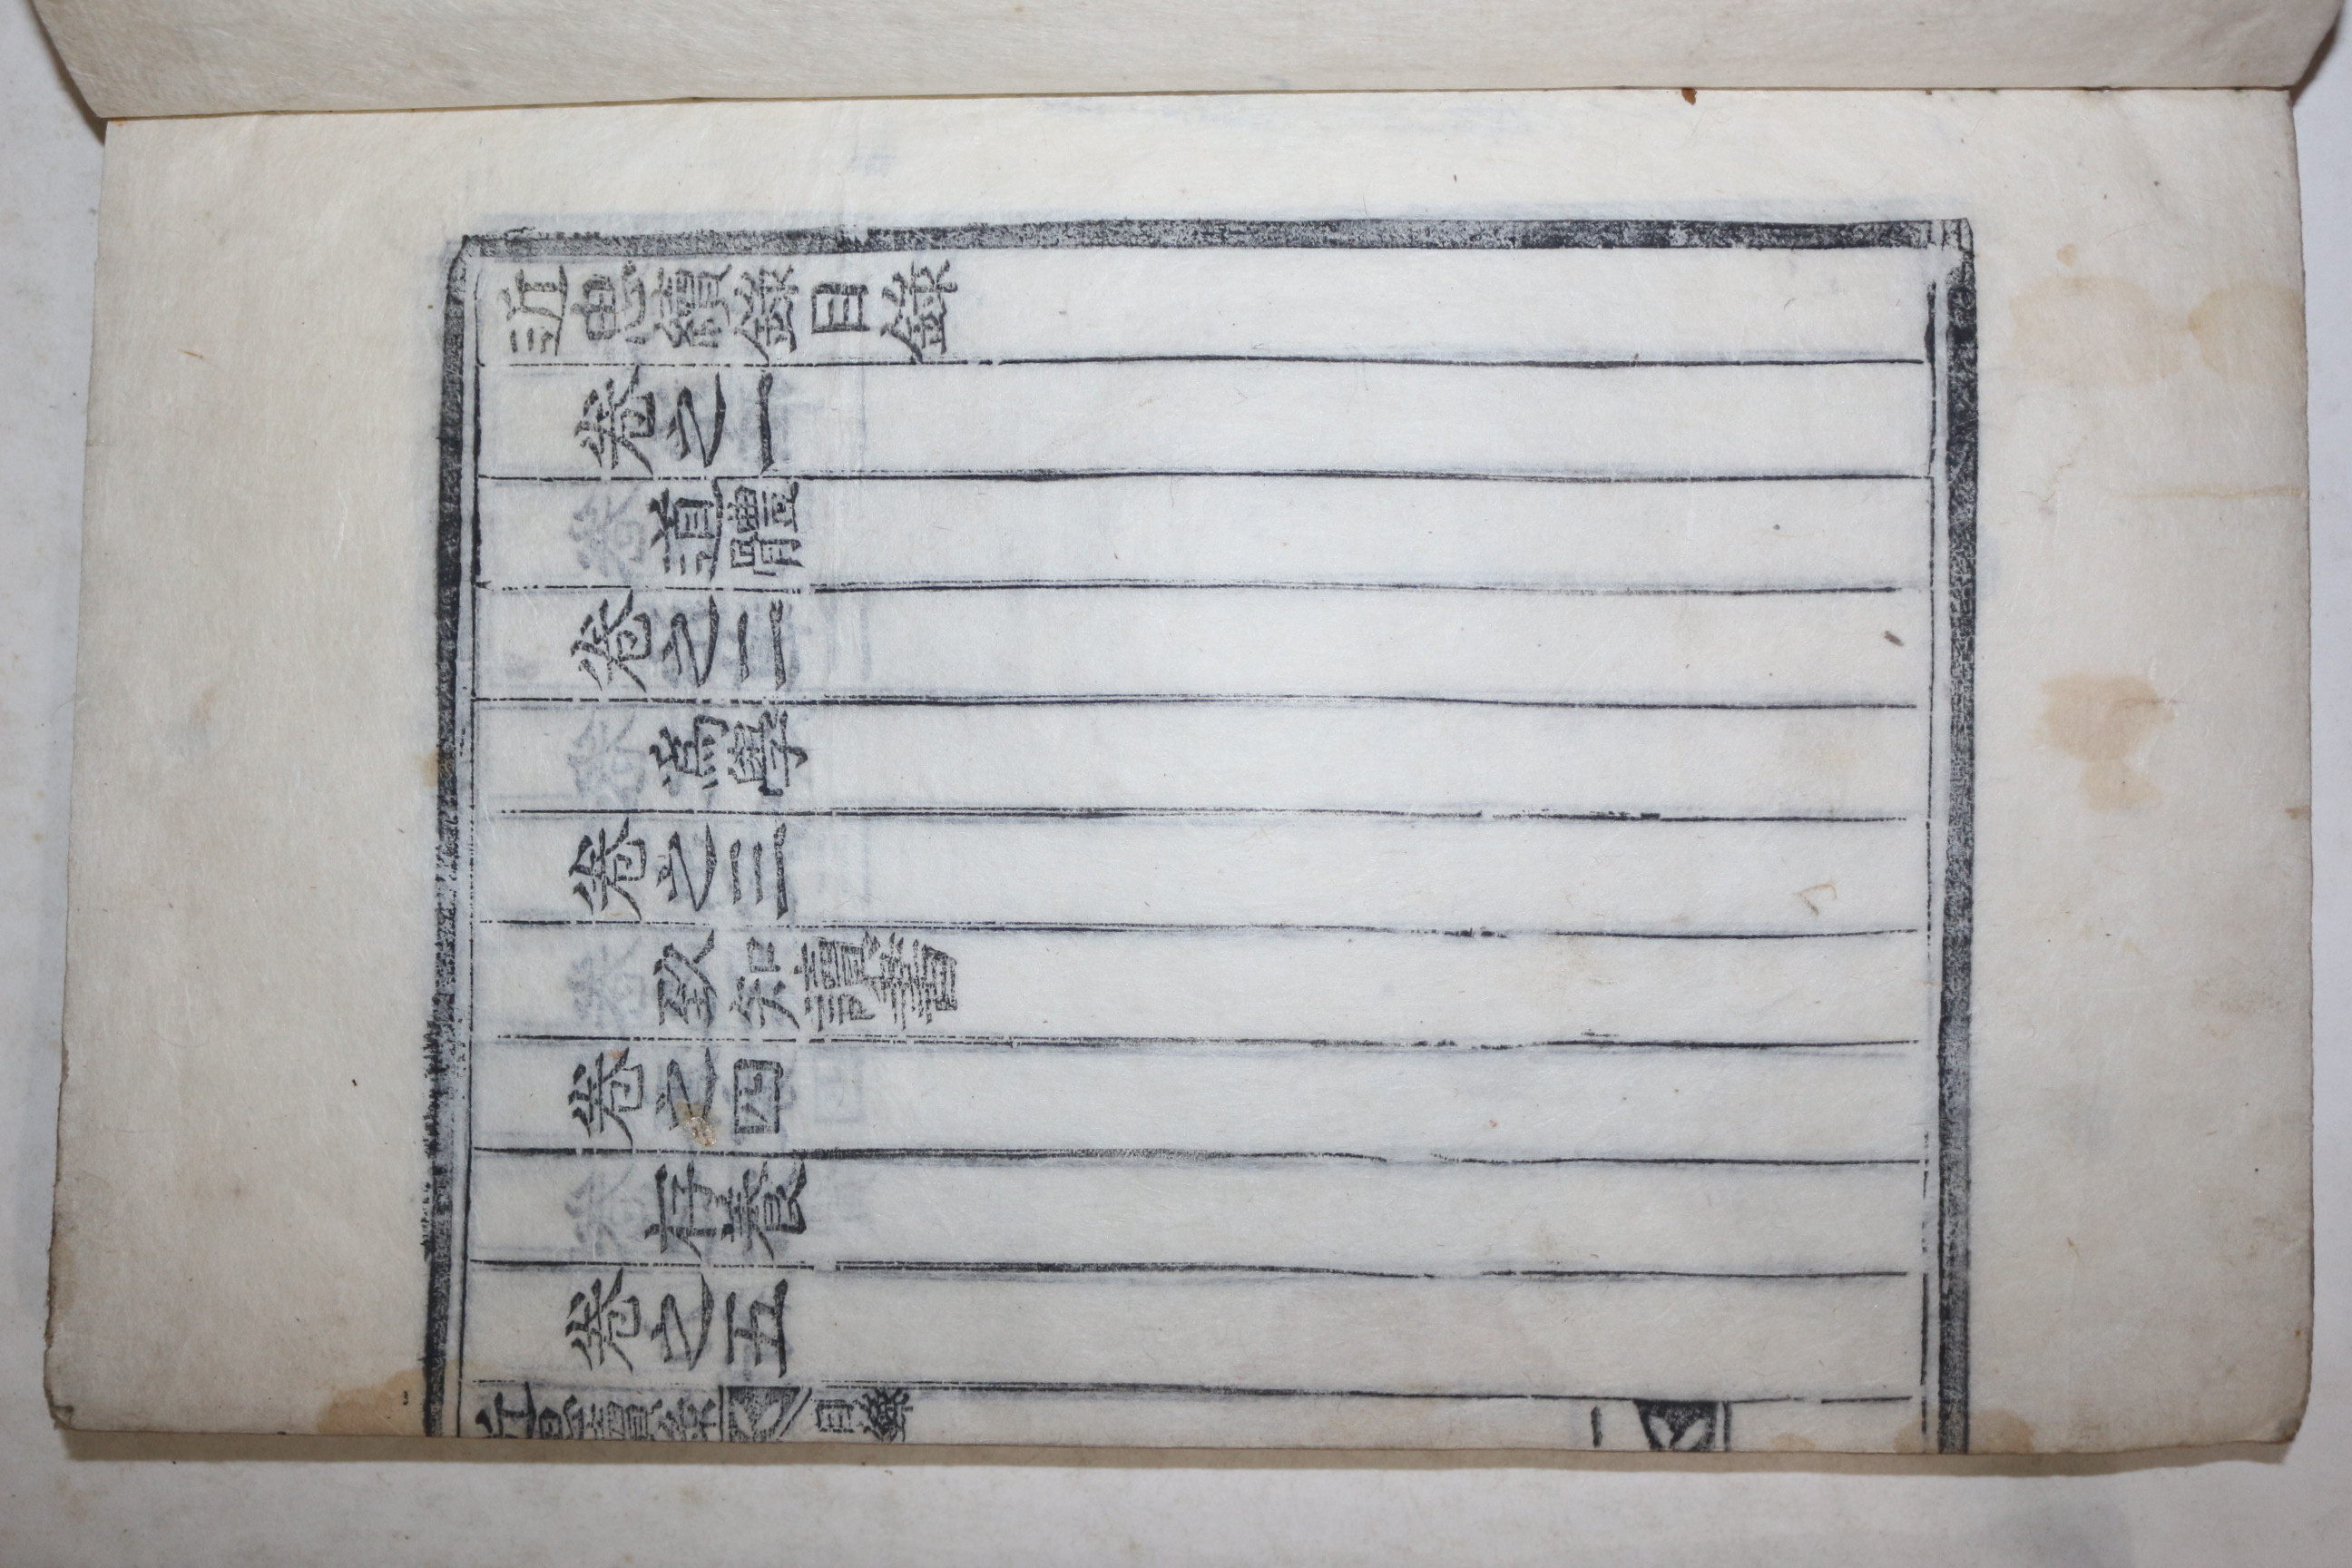 近思續錄目錄
卷之一
道體
卷之二
爲學
卷之三
致知讀書
卷之四
存養
卷之五
近思續錄 目錄 一